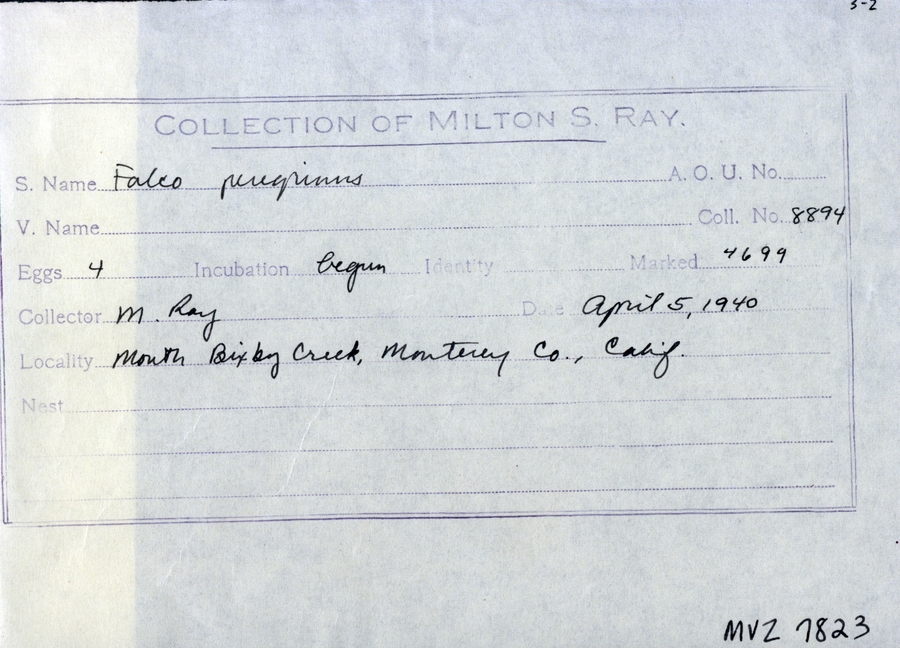 3-2
COLLECTION OF MILTON S. RAY.
S. Name Falco peregrinus A. O. U. No.
V. Name Coll. No. 8894
Eggs 4 Incubation begun Identity Marked 4699
Collector M. Ray Date April 5, 1940
Locality Mouth Bixby Creek, Monterey Co., Calif.
Nest
MVZ 7823